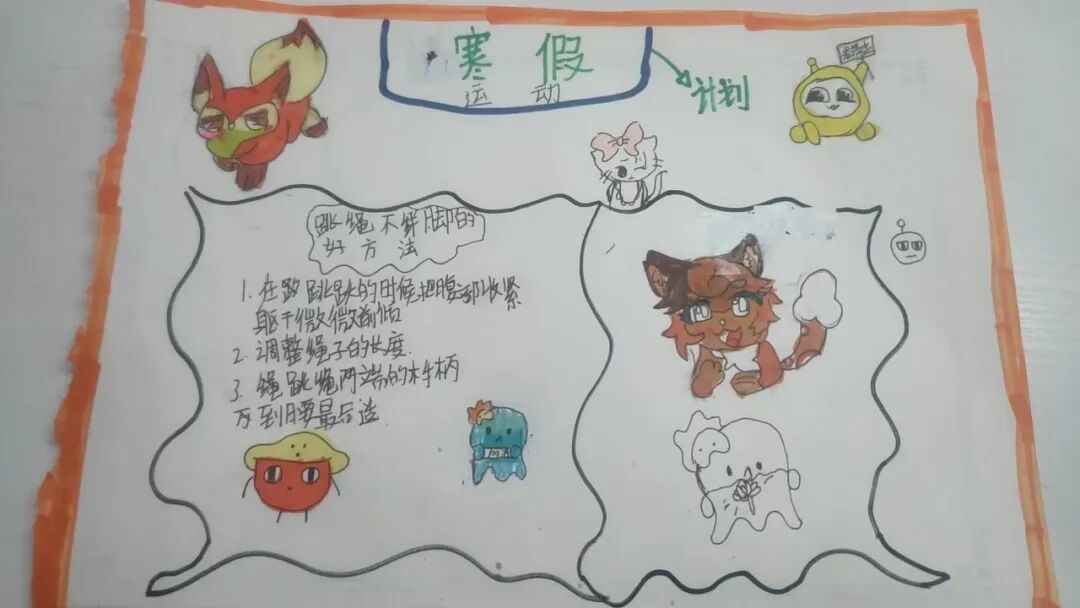 寒假
运动
计划
跳绳不绊脚的
好方法
1. 在跳跃的时候把腹部收紧
躯干微微前倾
2. 调整绳子的长度.
3. 绳跳绳两端的手柄